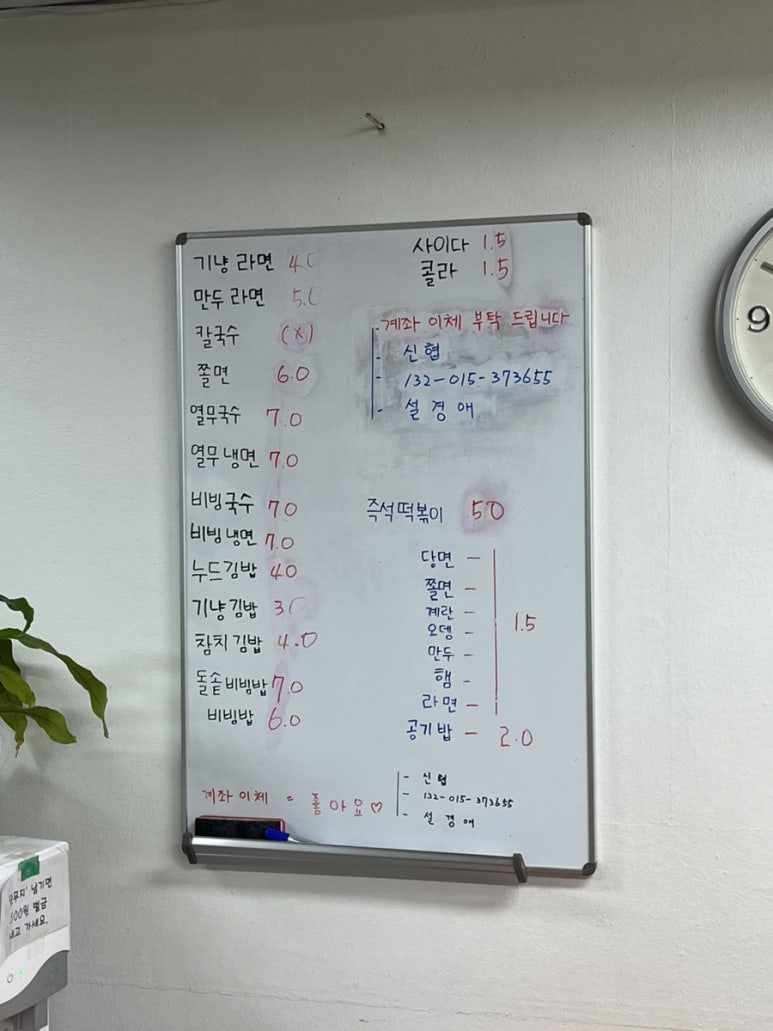 기냥 라면 4.0
만두 라면 5.0
칼국수 (X)
쫄면 6.0
열무국수 7.0
열무 냉면 7.0
비빙국수 7.0
비빙 냉면 7.0
누드김밥 4.0
기냥김밥 3.0
참치 김밥 4.0
돌솥 비빔밥 7.0
비빔밥 6.0
사이다 1.5
콜라 1.5
계좌 이체 부탁 드립니다
- 신협
- 132-015-373655
- 설경애
즉석떡볶이 5.0
당면 -
쫄면 -
계란 -
오뎅 -
만두 -
햄 -
라면 -
1.5
공기밥 - 2.0
계좌 이체 = 좋아요♡
- 신협
- 132-015-373655
- 설경애
남기면
500원 벌금
내고 가세요.
9